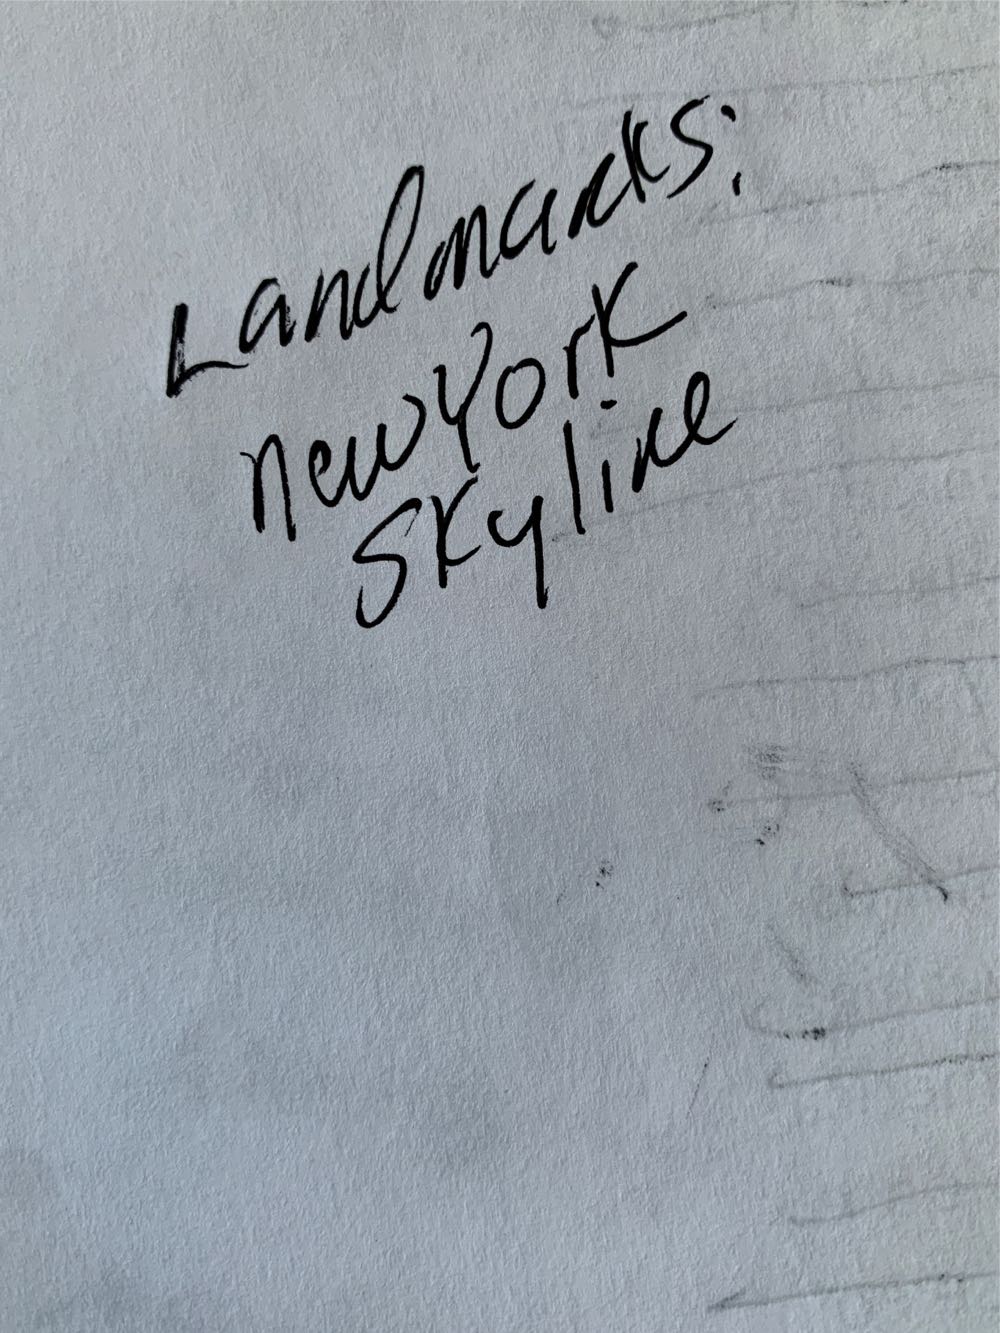 Landmarks:
new York
Skyline